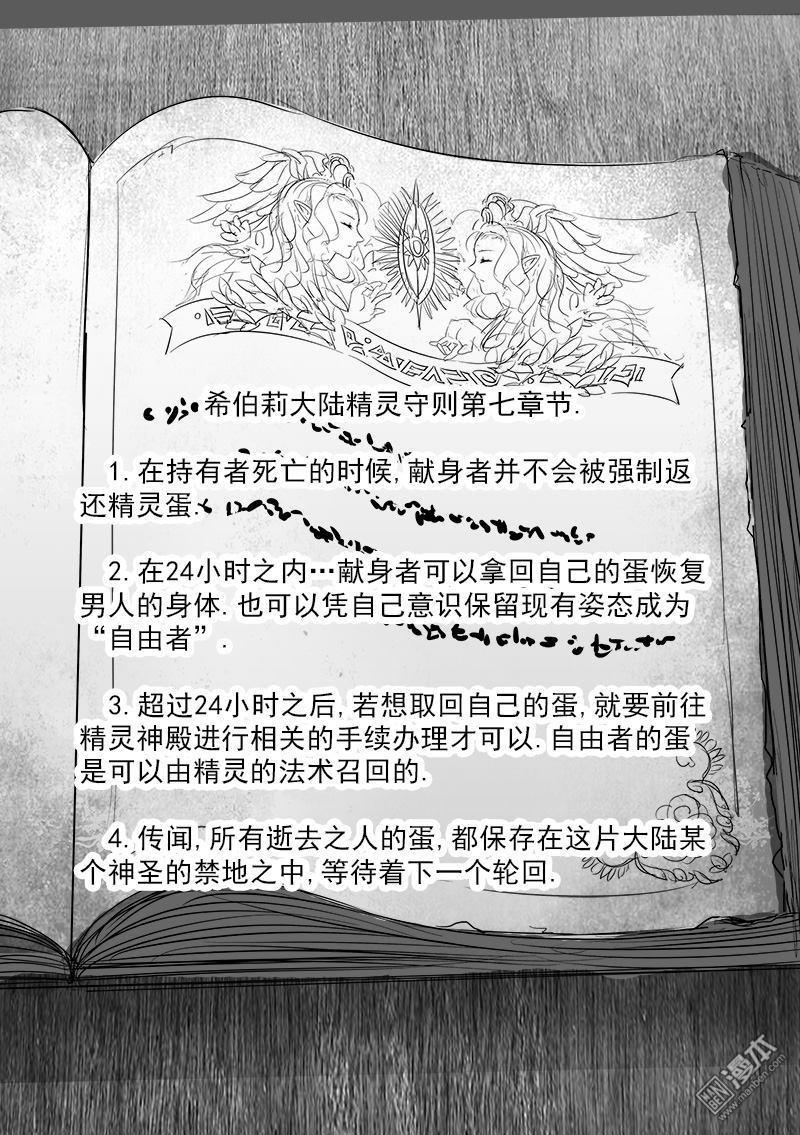 希伯莉大陆精灵守则第七章节.
1.在持有者死亡的时候,献身者并不会被强制返
还精灵蛋.
2.在24小时之内…献身者可以拿回自己的蛋恢复
男人的身体.也可以凭自己意识保留现有姿态成为
“自由者”.
3.超过24小时之后,若想取回自己的蛋,就要前往
精灵神殿进行相关的手续办理才可以.自由者的蛋
是可以由精灵的法术召回的.
4.传闻,所有逝去之人的蛋,都保存在这片大陆某
个神圣的禁地之中,等待着下一个轮回.
MAN
BEN
漫本
www.manben.com